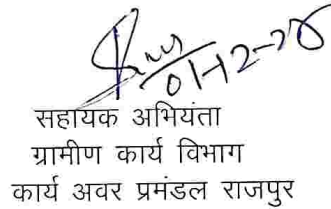 01-12-20
सहायक अभियंता
ग्रामीण कार्य विभाग
कार्य अवर प्रमंडल राजपुर